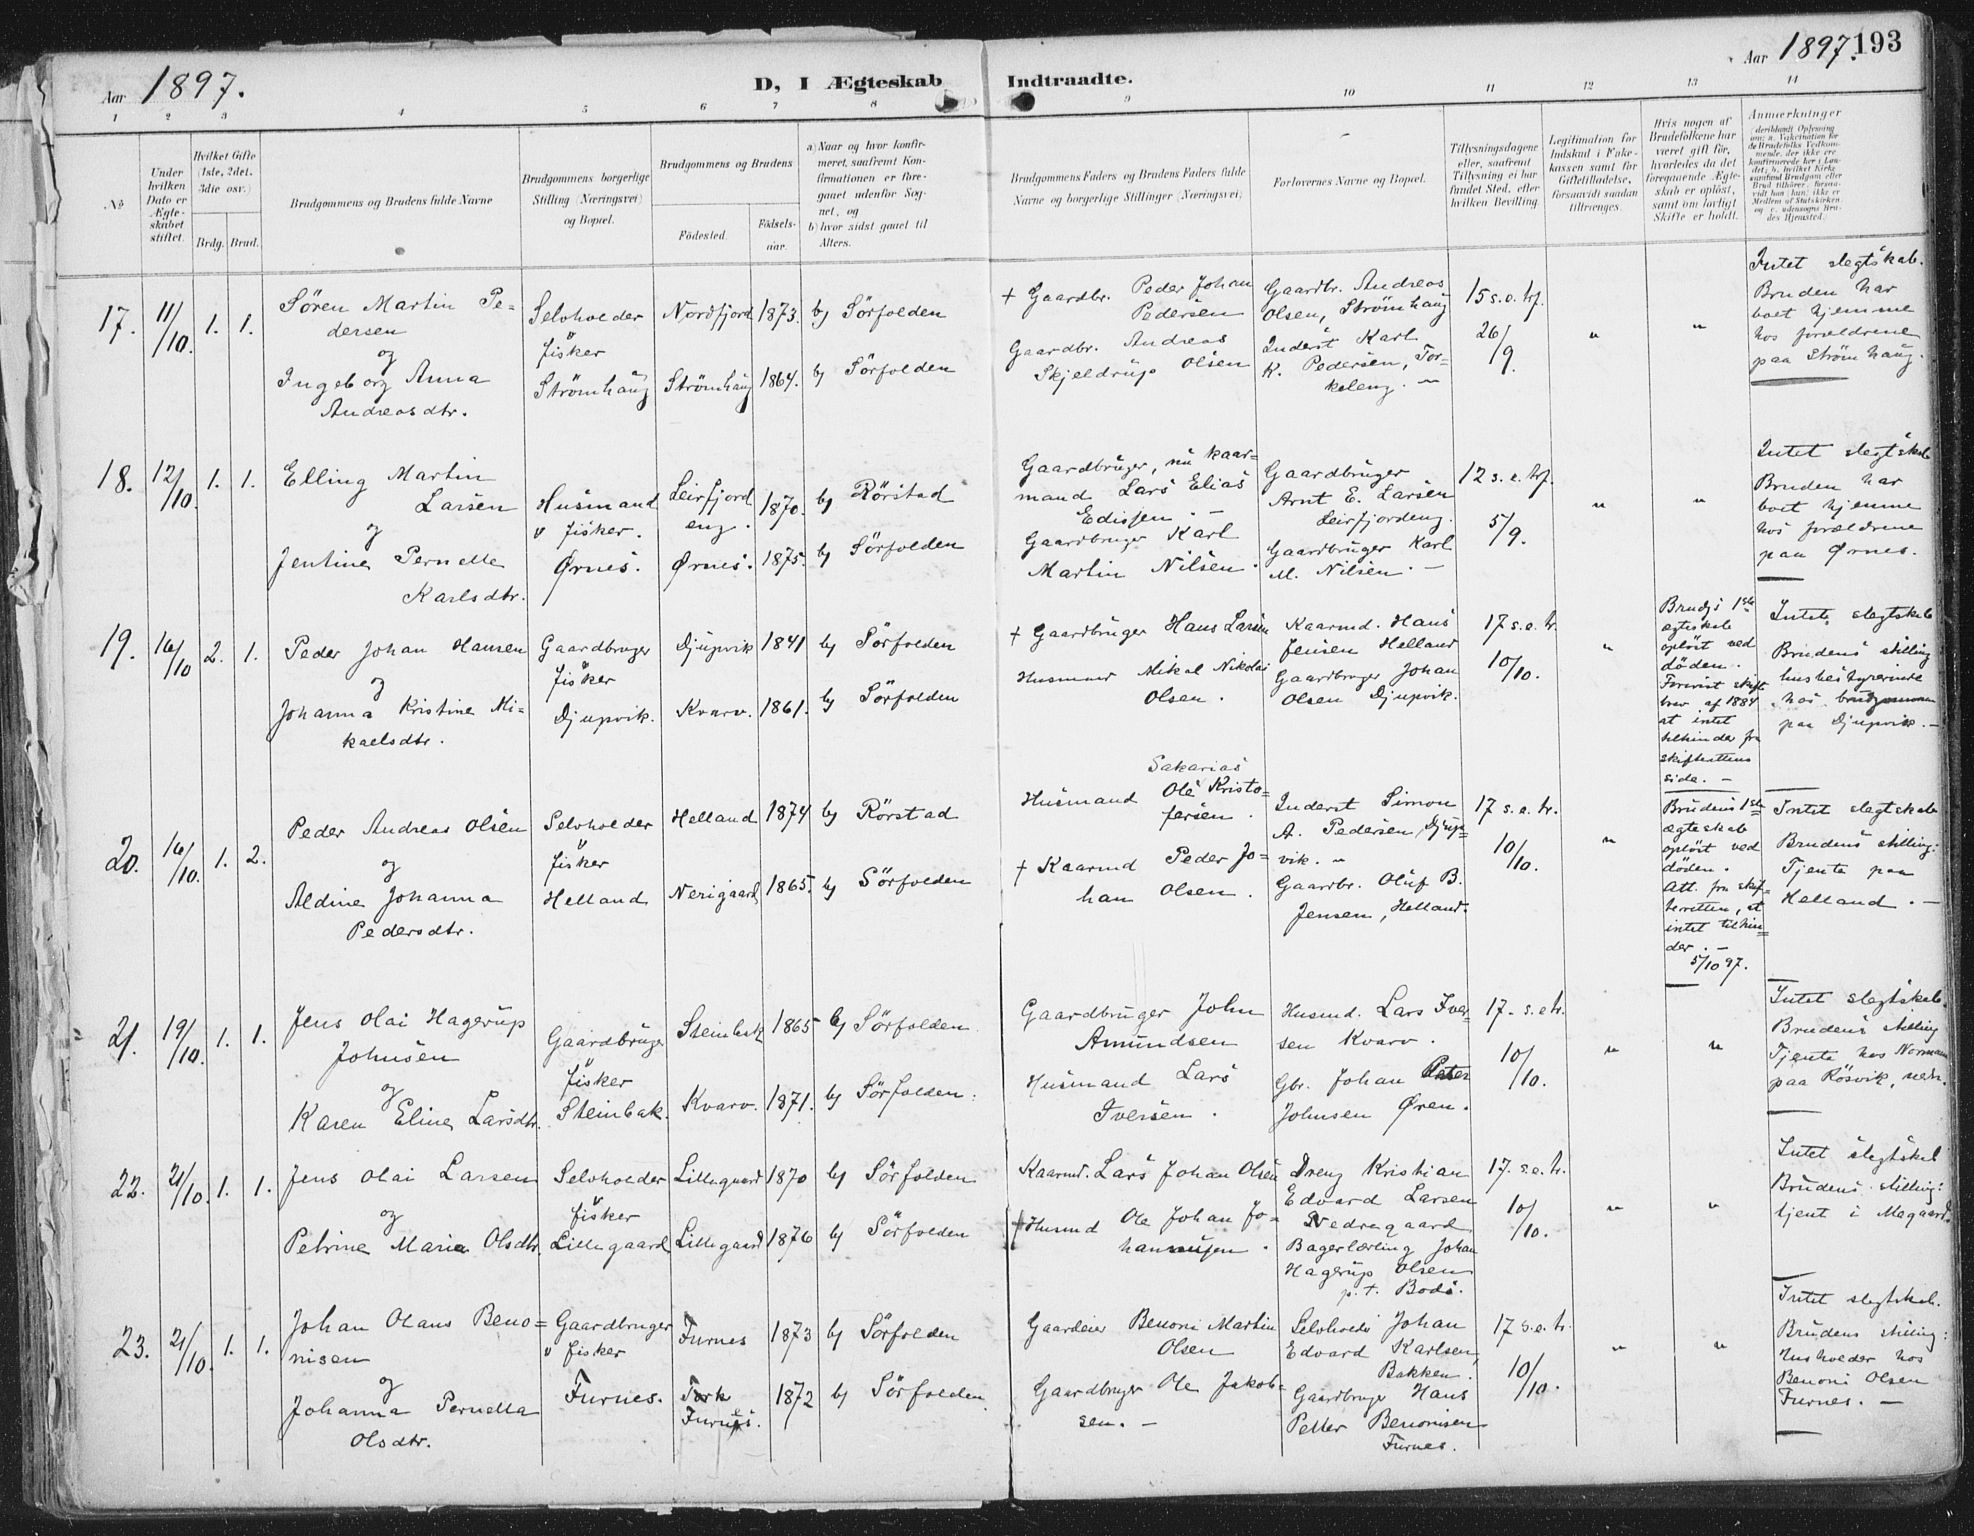 Aar 1897.
D, I Ægteskab Indtraadte.
Aar 1897. 193
1 2 3 4 5 6 7 8 9 10 11 12 13 14
No
Under hvilken Dato er Ægteskabet stiftet.
Hvilket Gifte (1ste, 2det, 3die osv.)
Brdg. Brud.
Brudgommens og Brudens fulde Navne
Brudgommens borgerlige Stilling (Næringsvei) og Bopæl.
Brudgommens og Brudens
Fødested.
Fødselsaar.
a) Naar og hvor konfirmeret, saafremt Konfirmationen er foregaaet udenfor Sognet, og
b) hvor sidst gaaet til Alters.
Brudgommens Faders og Brudens Faders fulde Navne og borgerlige Stillinger (Næringsvei)
Forlovernes Navne og Bopæl.
Tillysningsdagene eller, saafremt Tillysning ei har fundet Sted, efter hvilken Bevilling.
Legitimation for Indskud i Enkekassen samt for Giftetilladelse, forsaavidt saadan tiltrænges.
Hvis nogen af Brudefolkene har været gift før, hvorledes da det foregaaende Ægteskab er opløst, samt om lovligt Skifte er holdt.
Anmærkninger
17. 11/10. 1. 1.
Sören Martin Pe-
dersen
og
Ingeborg Anna
Andreasdtr.
Selvholder
fisker
Strömhaug
Nordfjord 1873. b) Sörfolden
Strömhaug 1864. b) Sörfolden
+ Gaardbr. Peder Johan
Pedersen
Gaardbr. Andreas
Skjeldrup Olsen
Gaardbr. Andreas
Olsen, Strömhaug
Inderst Karl
K. Pedersen, Tor-
keleng. —
15 s. e. trf.
26/9.
" "
Intet slegtskab.
Bruden har
boet hjemme
hos forældrene
paa Strömhaug.
18. 12/10. 1. 1.
Elling Martin
Larsen
og
Jentine Pernelle
Karlsdtr.
Husmand
v fisker.
Ørnes.
Leirfjord
eng. 1870. b) Rörstad
Ørnes. 1875. b) Sörfolden
Gaardbruger, nu kaar-
mand Lars Elias
Edisjen. —
Gaardbruger Karl
Martin Nilsen.
Gaardbruger
Arnt E. Larsen
Leirfjordeng.
Gaardbruger Karl
M. Nilsen. —
12 s. e. trf.
5/9.
" "
Intet slegtskab
Bruden har
boet hjemme
hos forældrene
paa Ørnes.
19. 16/10 2. 1.
Peder Johan Hansen
og
Johanna Kristine Mi-
kaelsdtr.
Gaardbruger
fisker
Djupvik.
Djupvik 1841 b) Sörfolden
Kvarv. 1861. b) Sörfolden
+ Gaardbruger Hans Larsen
Husmand Mikal Nikolai
Olsen.
Kaarmd. Hans
Jensen Helland
Gaardbruger Johan
Olsen Djupvik.
17 s. e. tr.
10/10.
"
Brudgs 1ste
ægteskab
oplöst ved
döden.
Forevist skifte
brev af 1884
at intet
tilhinder fra
skifterettens
side. —
Intet slegtskab
Brudens stilling
husbestyrerinde
hos brudgommen
paa Djupvik. —
20. 16/10. 1. 2.
Peder Andreas Olsen
og
Aldine Johanna
Pedersdtr.
Selvholder
fisker
Helland
Helland 1874 b) Rörstad
Nerigaard 1865. b) Sörfolden
Sakarias
Husmand Ole Kristo-
fersen.
+ Kaarmd Peder Jo-
han Olsen.
Inderst Simon
A. Pedersen, Djup-
vik. —
Gaardbr. Oluf B.
Jensen, Helland.
17 s. e. tr.
10/10.
"
Brudens 1ste
ægteskab
oplöst ved
döden.
Att. fra skif-
teretten, at
intet tilhin-
der. —
5/10 97.
Intet slegtskab
Brudens stilling:
Tjente paa
Helland. —
21. 19/10. 1. 1.
Jens Olai Hagerup
Johnsen
og
Karen Eline Larsdtr.
Gaardbruger
fisker
Steinbak.
Steinbak 1865 b) Sörfolden.
Kvarv. 1871. b) Sörfolden.
Gaardbruger John
Amundsen
Husmand Lars
Iversen.
Husmd. Lars Iver-
sen Kvarv.
Gbr. Johan Peter
Johnsen Øren.
17. s. e tr.
10/10.
" "
Intet slegtskab.
Brudens stilling
Tjente hos Normann
paa Rösvik, nedr.
22. 21/10. 1. 1.
Jens Olai Larsen
og
Petrine Marie Olsdtr.
Selvholder
fisker
Lillegaard
Lillegaard 1870 b) Sörfolden
Lillegaard 1876 b) Sörfolden
Kaarmd. Lars Johan Olsen
+ Husmd Ole Johan Jo-
hannesen.
Dreng Kristian
Edvard Larsen
Nedregaard
Bagerlærling Johan
Hagerup Olsen
p. t. Bodö.
17. s. e. tr.
10/10.
" "
Intet slegtskab
Brudens stilling:
tjent i Megaard.
23. 21/10. 1. 1.
Johan Olaus Beno-
nisen
og
Johanna Pernella
Olsdtr.
Gaardbruger
v fisker
Furnes.
Furnes 1873 b) Sörfolden
Furnes. 1872 b) Sörfolden.
Gaardeier Benoni Martin
Olsen
Gaardbruger Ole Jakob-
sen. —
Selvholder Johan
Edvard Karlsen,
Bakken.
Gaardbruger Hans
Petter Benonisen
Furnes.
17 s. e. tr.
10/10.
" "
Intet slegtskab.
Brudens stilling:
Husholder hos
Benoni Olsen
Furnes. —